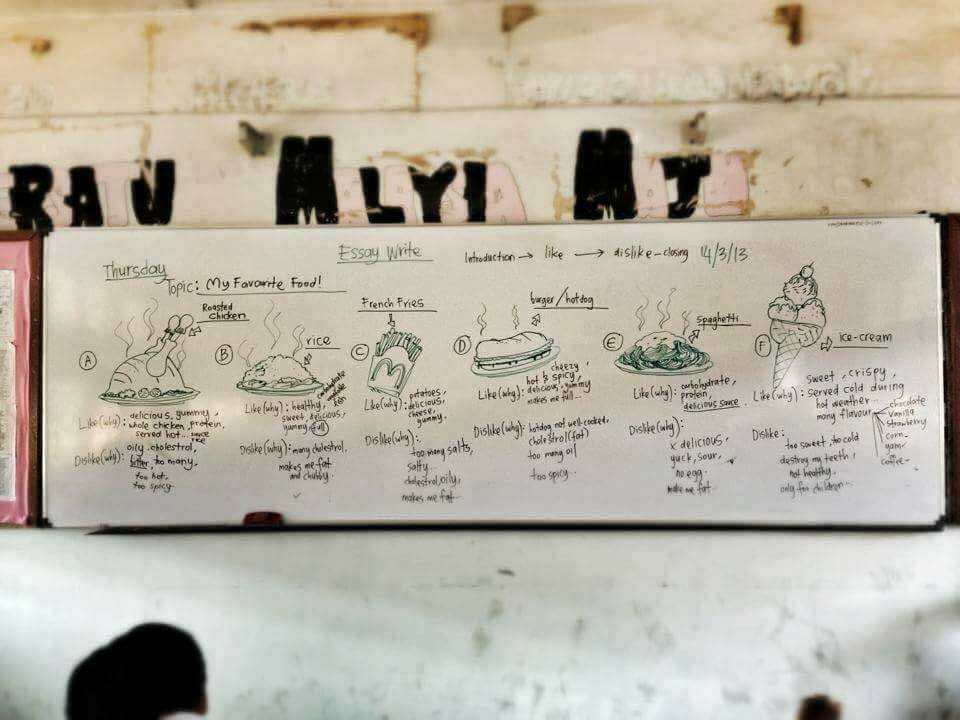 Essay Write
Introduction → like → dislike - closing 14/3/13
Thursday
Topic: My Favourite Food!
A
Roasted
chicken
Like(why): delicious, gummy,
whole chicken, protein,
served hot... sauce
rice
Dislike(why): oily, cholestrol,
bitter, too many,
too hot,
too spicy
B
rice
carbohydrate
vegetable
fish
Like(why): healthy,
sweet, delicious,
yummy (full)
Dislike(why): many cholestrol,
makes me fat
and chubby.
C
French Fries
Like(why): potatoes,
delicious,
cheese,
yummy.
Dislike(why):
too many salts,
salty...
cholestrol, oily,
makes me fat
D
burger/hotdog
cheezy,
hot & spicy,
Like(why): delicious, yummy
makes me full...
Dislike(why): hotdog not well-cooked,
cholestrol (fat)
too many oil
too spicy
E
spaghetti
Like(why): carbohydrate,
protein,
delicious sauce
Dislike(why):
x delicious,
yuck, sour,
no egg
make me fat
F
ice-cream
sweet, crispy,
Like(why): served cold during
hot weather...
many flavour
chocolate
vanilla
strawberry
corn
yam
coffee
Dislike:
too sweet, too cold
destroy my teeth!
not healthy.
only for children...